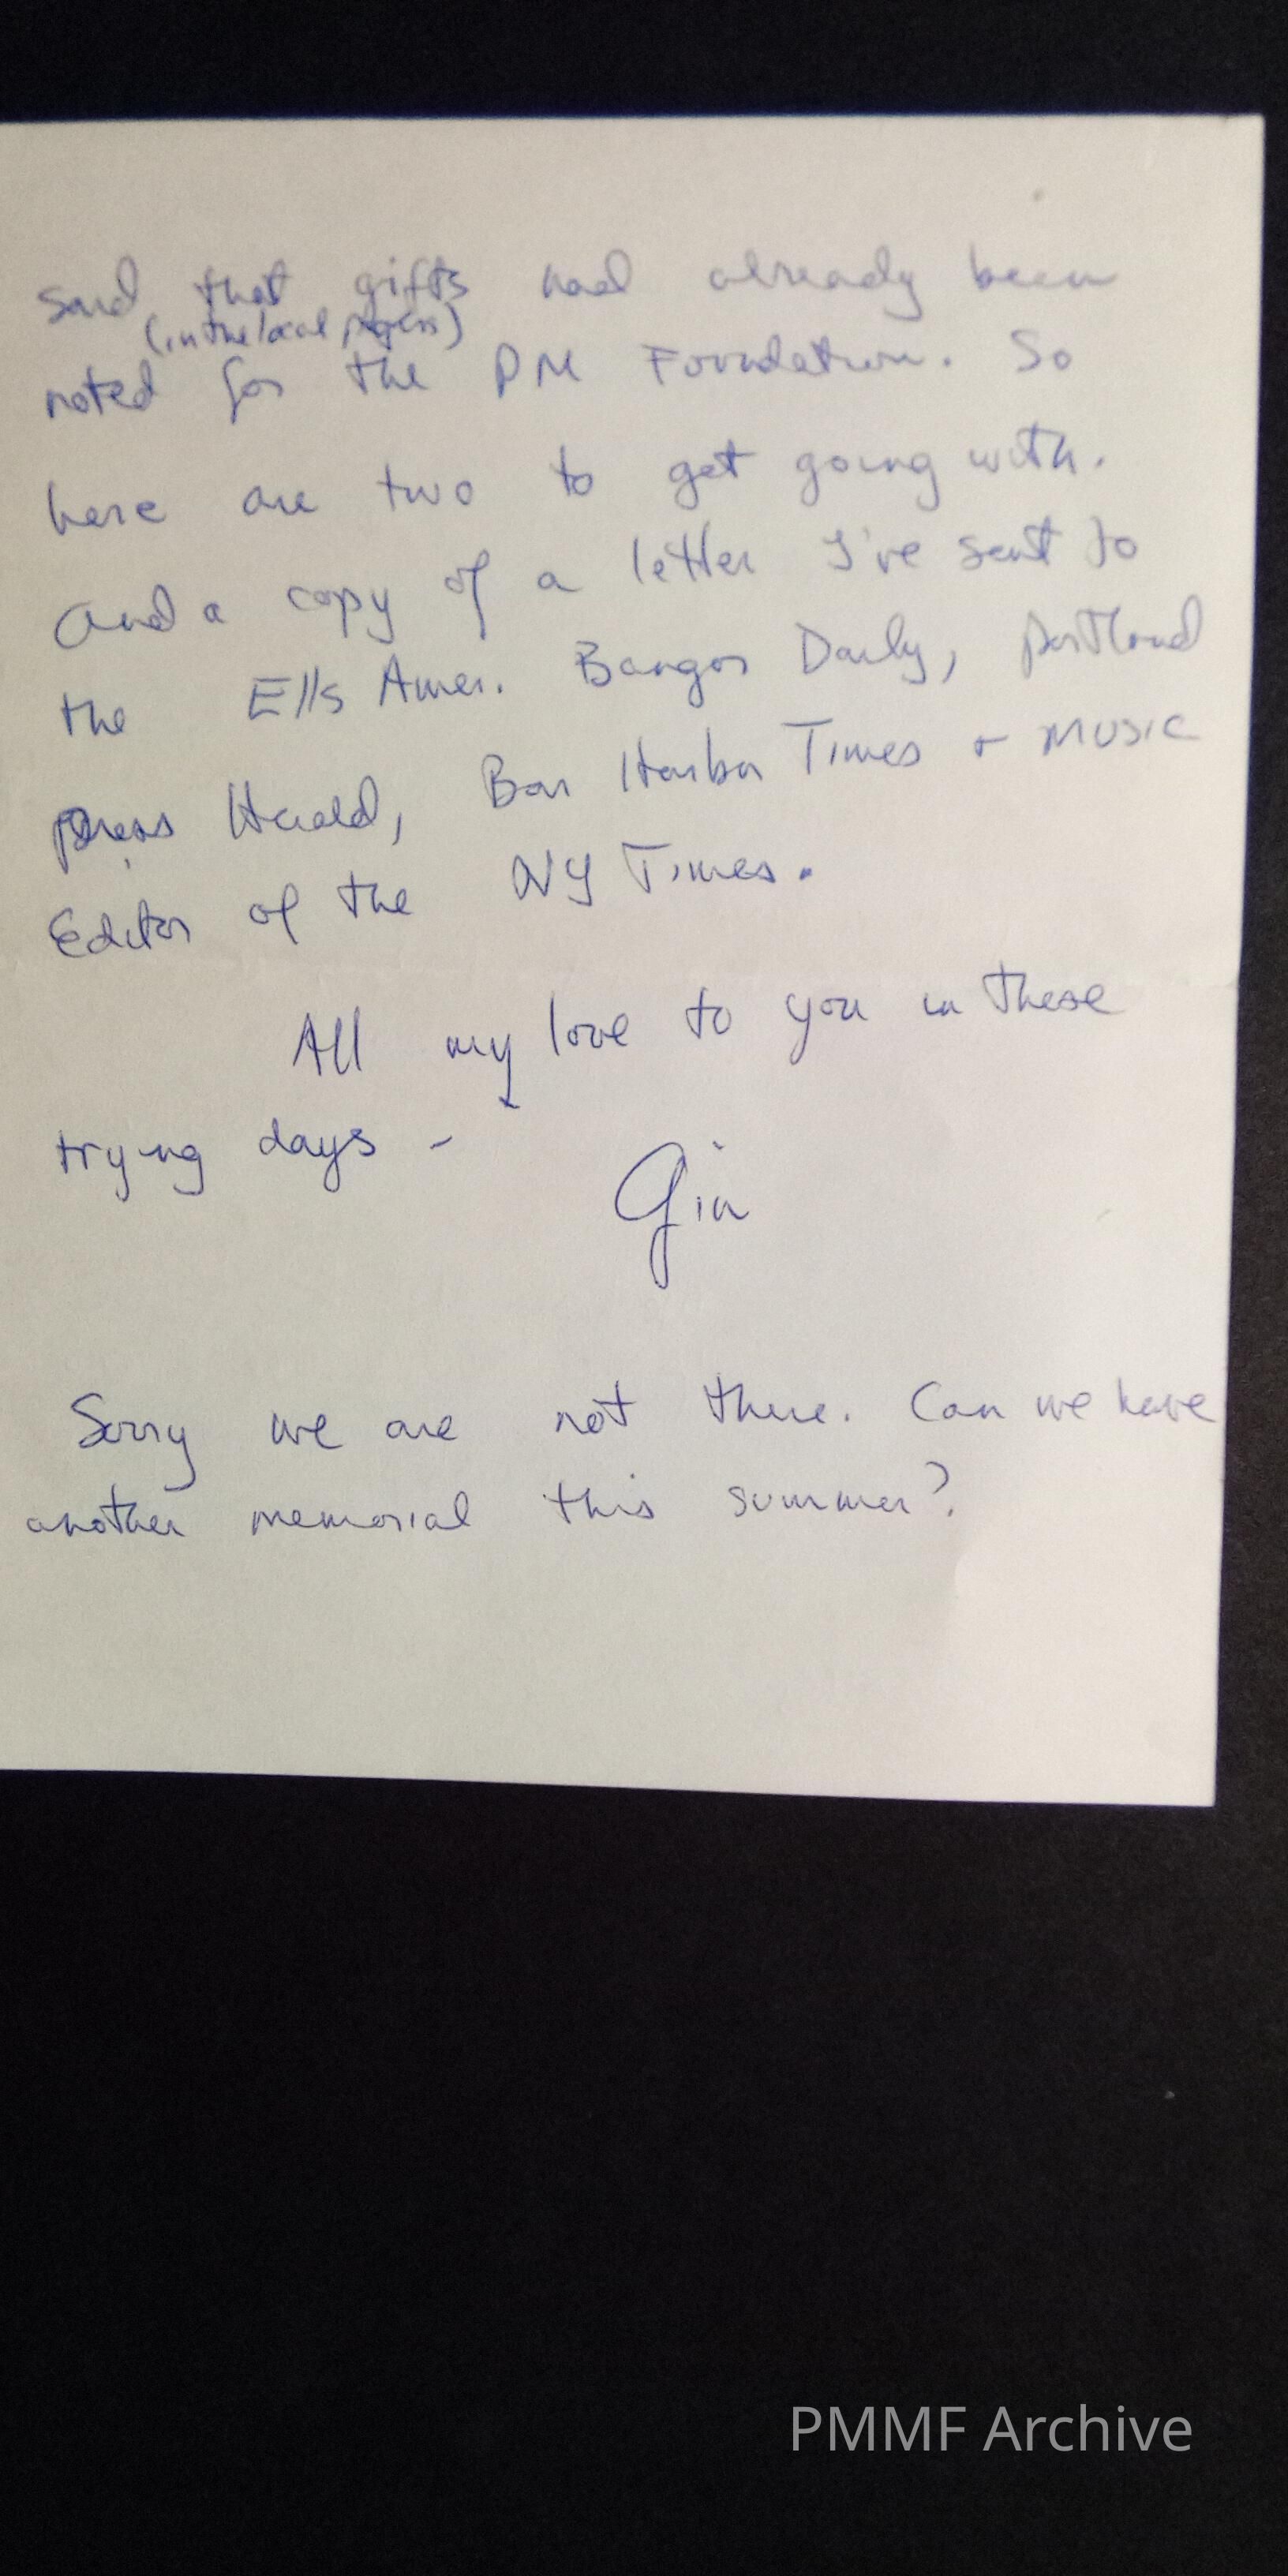 said that gifts had already been
(in the local papers)
noted for the PM Foundation. So
here are two to get going with.
And a copy of a letter I've sent to
the Ells Amer. Bangor Daily, Portland
Press Herald, Bar Harbor Times + Music
Editor of the NY Times.
All my love to you in these
trying days -
Gin
Sorry we are not there. Can we have
another memorial this summer?
PMMF Archive